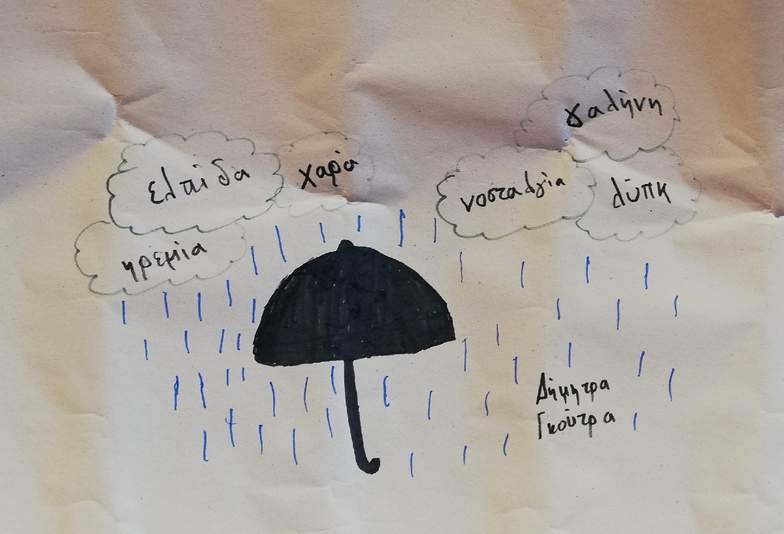 γαλήνη
ελπίδα
χαρά
νοσταλγία
λύπη
ηρεμία
Δήμητρα
Γκούτρα